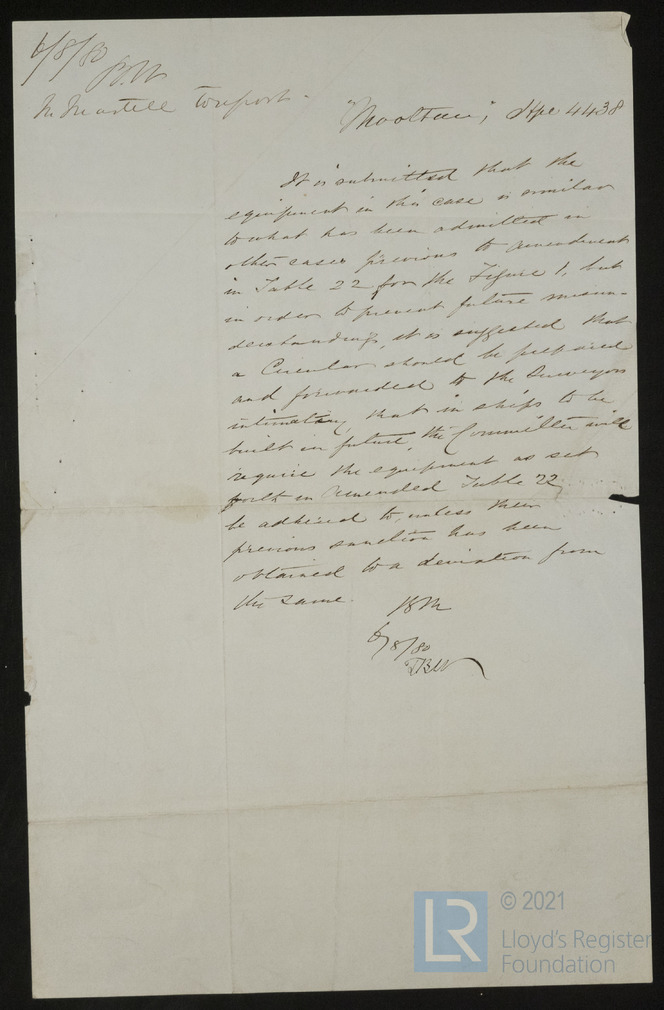 6/8/80
B.W
Mr Martell to report.
"Mooltan", Hpe 4438
It is submitted that the
equipment in this case is similar
to what has been admitted in
other cases previous to amendment
in Table 22 for the Figure 1, but
in order to prevent future misun-
derstandings, it is suggested that
a Circular should be prepared
and forwarded to the Surveyors
intimating that in ships to be
built in future, the Committee will
require the equipment as set
forth in amended Table 22
be adhered to, unless their
previous sanction has been
obtained to a deviation from
the same.
BM
6/8/80
LR
© 2021
Lloyd's Register
Foundation